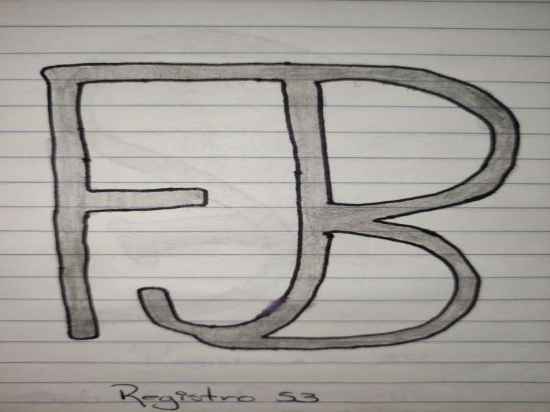 FJB
Registro S3